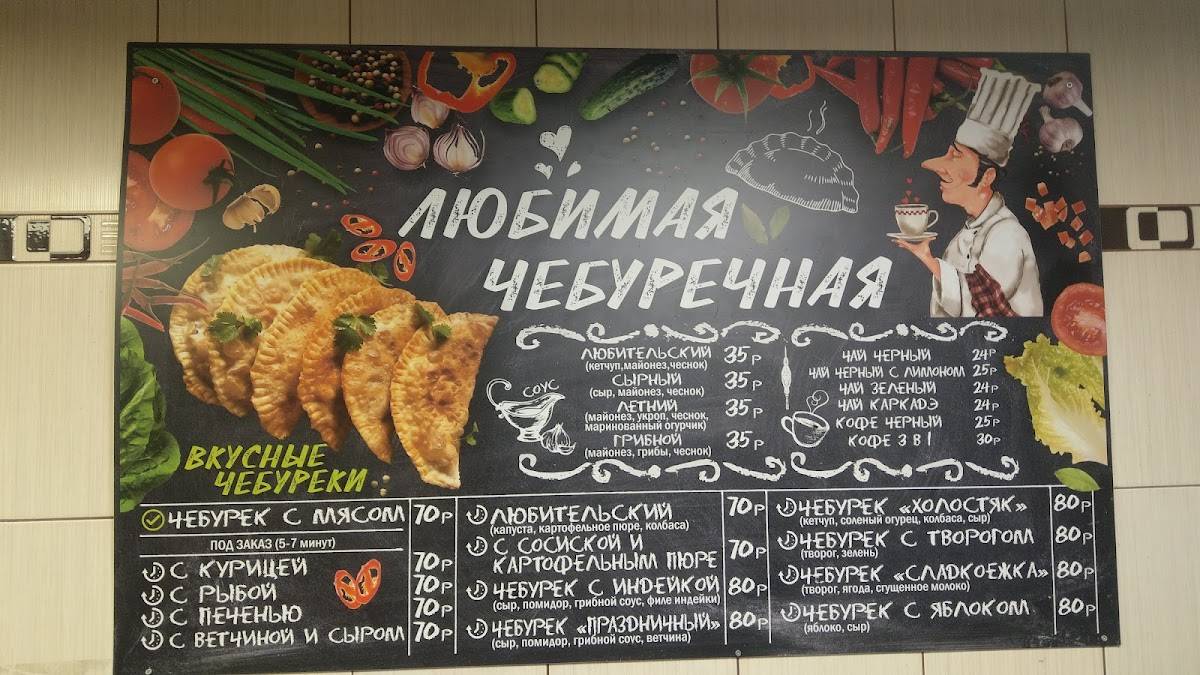 ЛЮБИМАЯ
ЧЕБУРЕЧНАЯ
СОУС
ЛЮБИТЕЛЬСКИЙ 35 Р
(кетчуп,майонез,чеснок)
СЫРНЫЙ 35 Р
(сыр, майонез, чеснок)
ЛЕТНИЙ 35 Р
(майонез, укроп, чеснок,
маринованный огурчик)
ГРИБНОЙ 35 Р
(майонез, грибы, чеснок)
ЧАЙ ЧЕРНЫЙ 24 Р
ЧАЙ ЧЕРНЫЙ С ЛИМОНОМ 25 Р
ЧАЙ ЗЕЛЕНЫЙ 24 Р
ЧАЙ КАРКАДЭ 24 Р
КОФЕ ЧЕРНЫЙ 25 Р
КОФЕ 3 В 1 30 Р
ВКУСНЫЕ
ЧЕБУРЕКИ
ЧЕБУРЕК С МЯСОМ 70 Р
ПОД ЗАКАЗ (5-7 минут)
С КУРИЦЕЙ 70 Р
С РЫБОЙ 70 Р
С ПЕЧЕНЬЮ 70 Р
С ВЕТЧИНОЙ И СЫРОМ 70 Р
ЛЮБИТЕЛЬСКИЙ 70 Р
(капуста, картофельное пюре, колбаса)
С СОСИСКОЙ И
КАРТОФЕЛЬНЫМ ПЮРЕ 70 Р
ЧЕБУРЕК С ИНДЕЙКОЙ 80 Р
(сыр, помидор, грибной соус, филе индейки)
ЧЕБУРЕК «ПРАЗДНИЧНЫЙ» 80 Р
(сыр, помидор, грибной соус, ветчина)
ЧЕБУРЕК «ХОЛОСТЯК» 80 Р
(кетчуп, соленый огурец, колбаса, сыр)
ЧЕБУРЕК С ТВОРОГОМ 80 Р
(творог, зелень)
ЧЕБУРЕК «СЛАДКОЕЖКА» 80 Р
(творог, ягода, сгущенное молоко)
ЧЕБУРЕК С ЯБЛОКОМ 80 Р
(яблоко, сыр)